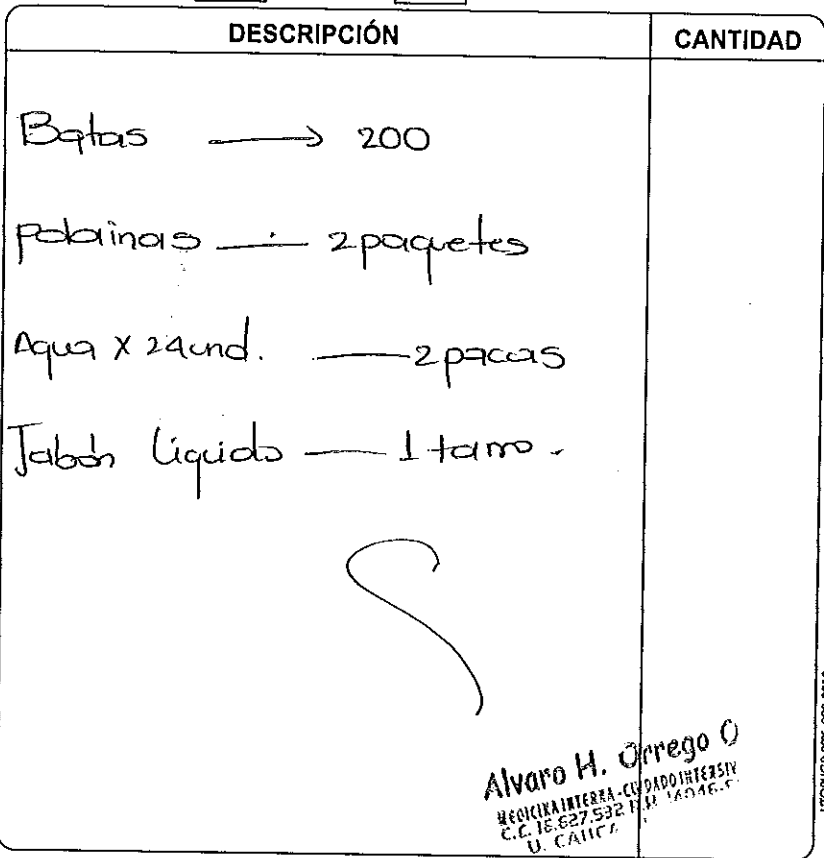 DESCRIPCIÓN CANTIDAD
Batas → 200
polainas — 2 paquetes
Agua X 24und. — 2 pacas
Jabón Líquido — 1 tarro.
Alvaro H. Orrego O
MEDICINA INTERNA - CUIDADO INTENSIV
C.C. 16.627.532 R.M.
U. CAUCA